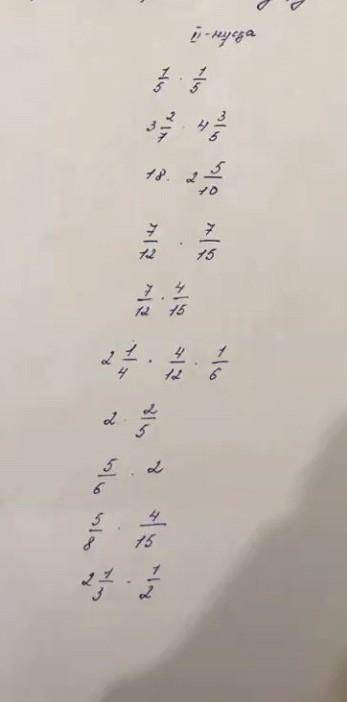 II-нұсқа
1/5 · 1/5
3 2/7 · 4 3/5
18 · 2 5/10
7/12 · 7/15
7/12 · 4/15
2 1/4 · 4/12 · 1/6
2 · 2/5
5/6 · 2
5/8 · 4/15
2 1/3 · 1/2